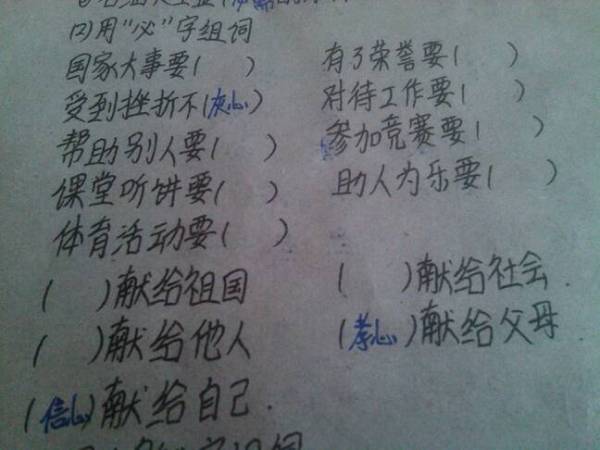 (2)用“心”字组词
国家大事要( ) 有了荣誉要( )
受到挫折不(灰心) 对待工作要( )
帮助别人要( ) 参加竞赛要( )
课堂听讲要( ) 助人为乐要( )
体育活动要( )
( )献给祖国 ( )献给社会.
( )献给他人 (孝心)献给父母
(信心)献给自己.